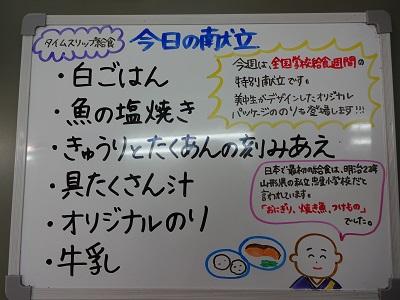 タイムスリップ給食
今日の献立
・白ごはん
・魚の塩焼き
・きゅうりとたくあんの刻みあえ
・具たくさん汁
・オリジナルのり
・牛乳
今週は、全国学校給食週間の
特別献立です。
美中生がデザインしたオリジナル
パッケージののりも登場します!!!
日本で最初の給食は、明治22年
山形県の私立忠愛小学校だと
言われています。
「おにぎり、焼き魚、つけもの」
でした。